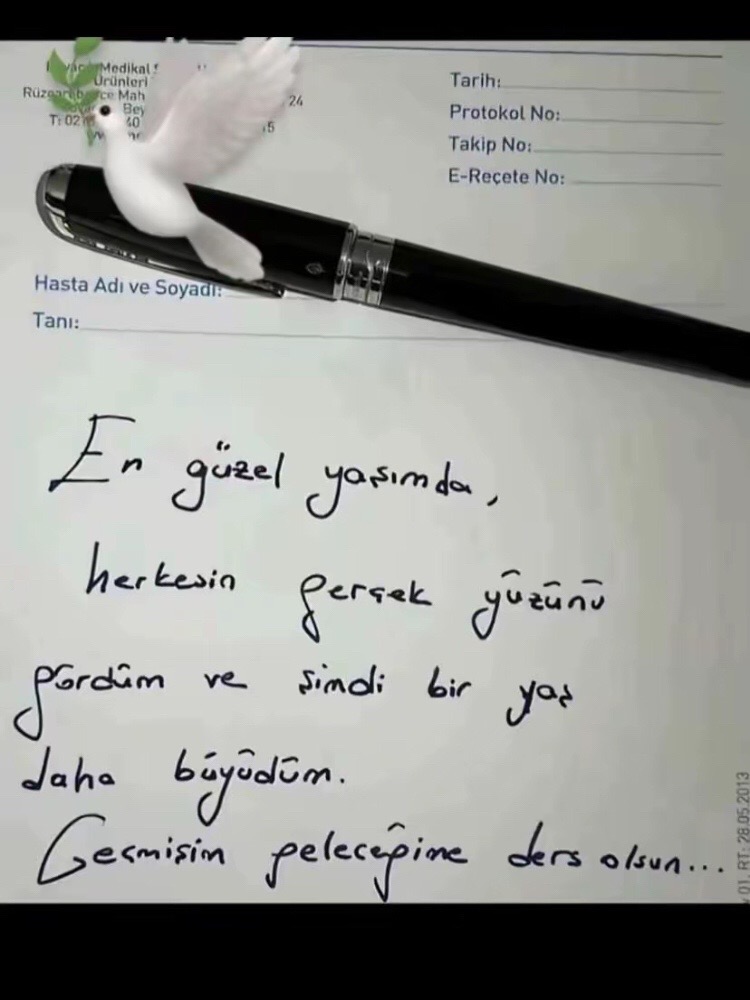 Medikal
Ürünleri
Mah
24
Bey
T: 02 40
Tarih:
Protokol No:
Takip No:
E-Reçete No:
Hasta Adı ve Soyadı:
Tanı:
En güzel yaşımda,
herkesin gerçek yüzünü
gördüm ve şimdi bir yaş
daha büyüdüm.
Geçmişim geleceğime ders olsun...
.01, RT: 28.05.2013